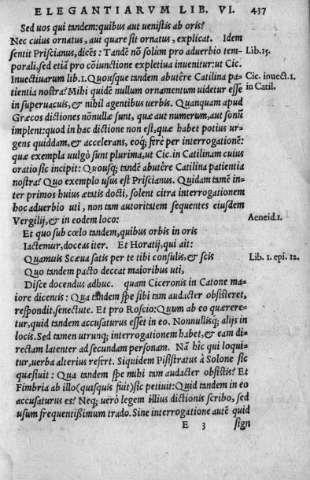 ELEGANTIARVM LIB. VI. 437
Sed uos qui tandem: quibus aut uenistis ab oris?
Nec cuius ornatus, aut quare sit ornatus, explicat. Idem
sentit Priscianus, dicēs: Tandē nō solùm pro aduerbio tem- Lib.15.
porali, sed etiā pro cōiunctione expletiua inuenitur: ut Cic.
Inuectiuarum lib. 1. Quousque tandem abutêre Catilina pa- Cic. inuect.1.
tientia nostra? Mihi quidē nullum ornamentum uidetur esse in Catil.
in superuacuis, & nihil agentibus uerbis. Quanquam apud
Græcos dictiones nōnullæ sunt, quæ aut numerum, aut sonū
implent: quod in hac dictione non est, quæ habet potius ur-
gens quiddam, & accelerans, eoq; ferè per interrogationē:
quæ exempla uulgò sunt plurima, ut Cic. in Catilinam cuius
oratio sic incipit: Quousq; tandē abutêre Catilina patientia
nostra? Quo exemplo usus est Priscianus. Quidam tamē in-
ter primos huius ætatis docti, solent citra interrogationem
hoc aduerbio uti, non tam autoritatem sequentes eiusdem
Vergilij, & in eodem loco: Aeneid.1.
Et quo sub cœlo tandem, quibus orbis in oris
Iactemur, doceas iter. Et Horatij, qui ait:
Quamuis Scæua satis per te tibi consulis, & scis Lib. 1. epi. 12.
Quo tandem pacto deceat maioribus uti,
Disce docendus adhuc. quam Ciceronis in Catone ma-
iore dicentis: Qua tandem spe sibi tam audacter obsisteret,
respondit, senectute. Et pro Roscio: Quum ab eo quærere-
tur, quid tandem accusaturus esset in eo. Nonnullisq; alijs in
locis. Sed tamen utrunq; interrogationem habet, & eam di-
rectam latenter ad secundam personam. Nā hic qui loqui-
tur, uerba alterius refert. Siquidem Pisistratus à Solone sic
quæsiuit: Qua tandem spe mihi tam audacter obsistis? Et
Fimbria ab illo (quisquis fuit) sic petiuit: Quid tandem in eo
accusaturus es? Neq; uerò legem illius dictionis scribo, sed
usum frequentissimum trado. Sine interrogatione autē quid
E 3 sign